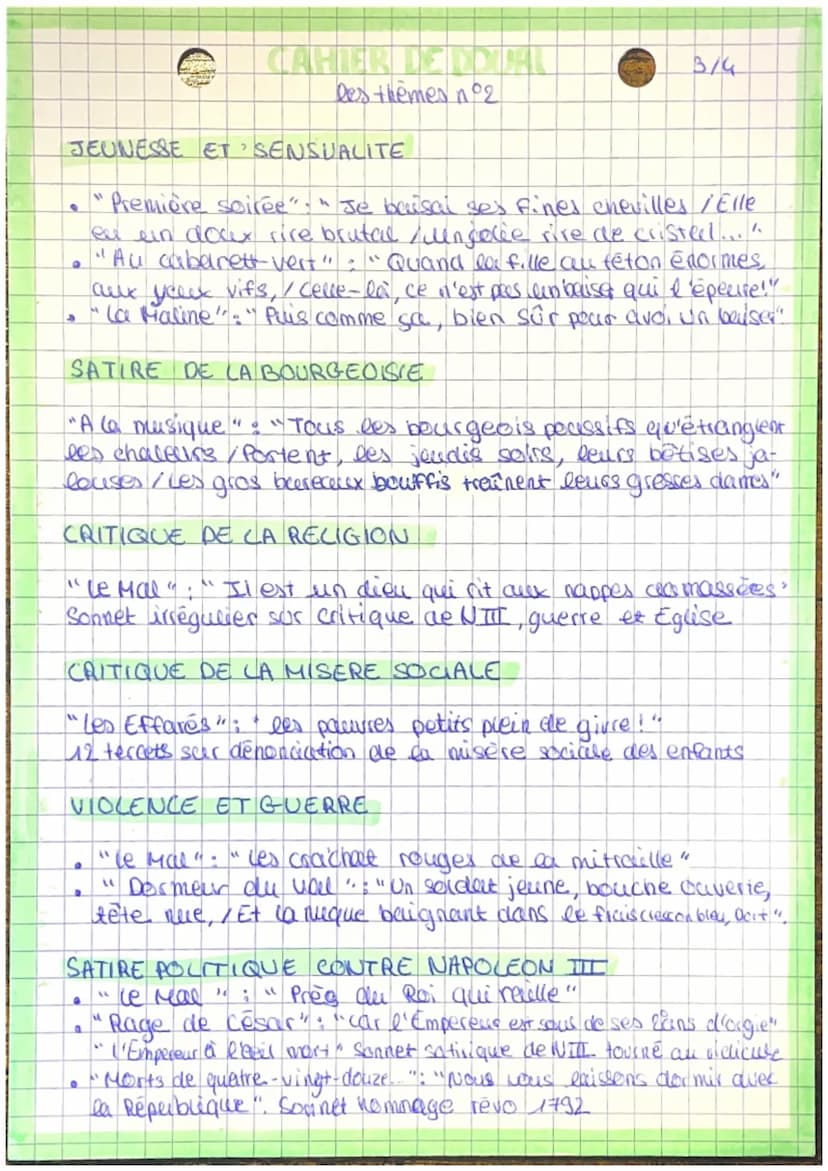 CAHIER DE DOUAI
3/4
les thèmes n°2
JEUNESSE ET SENSUALITE
• "Première soirée" : " Je baisai ses fines chevilles / Elle
eu un doux rire brutal / un jolie rire de cristal... ".
• "Au cabaret-vert" : "Quand la fille au téton énormes,
aux yeux vifs, / celle-là, ce n'est pas un baiser qui l'épeure!"
• "La Maline" : " Puis comme ça, bien sûr pour avoi un baiser"
SATIRE DE LA BOURGEOISIE
"A la musique" : "Tous les bourgeois poussifs qu'étranglent
les chaleurs / Portent, les jeudis soirs, leurs bêtises ja-
louses / Les gros bureaux bouffis traînent leurs grosses dames"
CRITIQUE DE LA RELIGION
"Le Mal" : " Il est un dieu qui rit aux nappes damassées"
Sonnet irrégulier sur critique de NIII, guerre et Eglise
CRITIQUE DE LA MISERE SOCIALE
"Les Effarés" : " les pauvres petits plein de givre! "
12 tercets sur dénonciation de la misère sociale des enfants
VIOLENCE ET GUERRE
• "Le Mal" : " Les crachat rouges de la mitraille "
• " Dormeur du val " : "Un soldat jeune, bouche ouverte,
tête nue, / Et la nuque baignant dans le frais cresson bleu, Dort ".
SATIRE POLITIQUE CONTRE NAPOLEON III
• " Le Mal " : " Près du Roi qui raille "
• "Rage de César" : "car l'Empereur est soul de ses 20ans d'orgie"
" L'Empereur à l'oeil mort " Sonnet satirique de NIII tourné au ridicule
• "Morts de quatre-vingt-douze..." : "Nous vous laissons dormir avec
la République". Sonnet hommage révo 1792